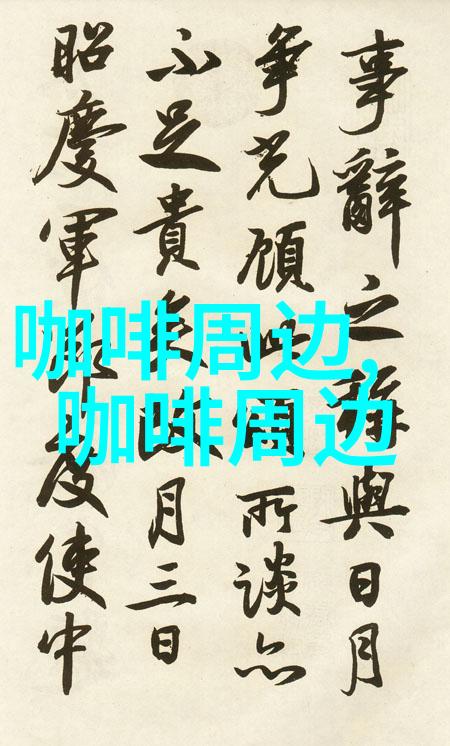 事辭之與日月
爭光顧所談亦
不足貴矣月三日
昭慶軍節度使中
咖啡周边,
咖啡周边